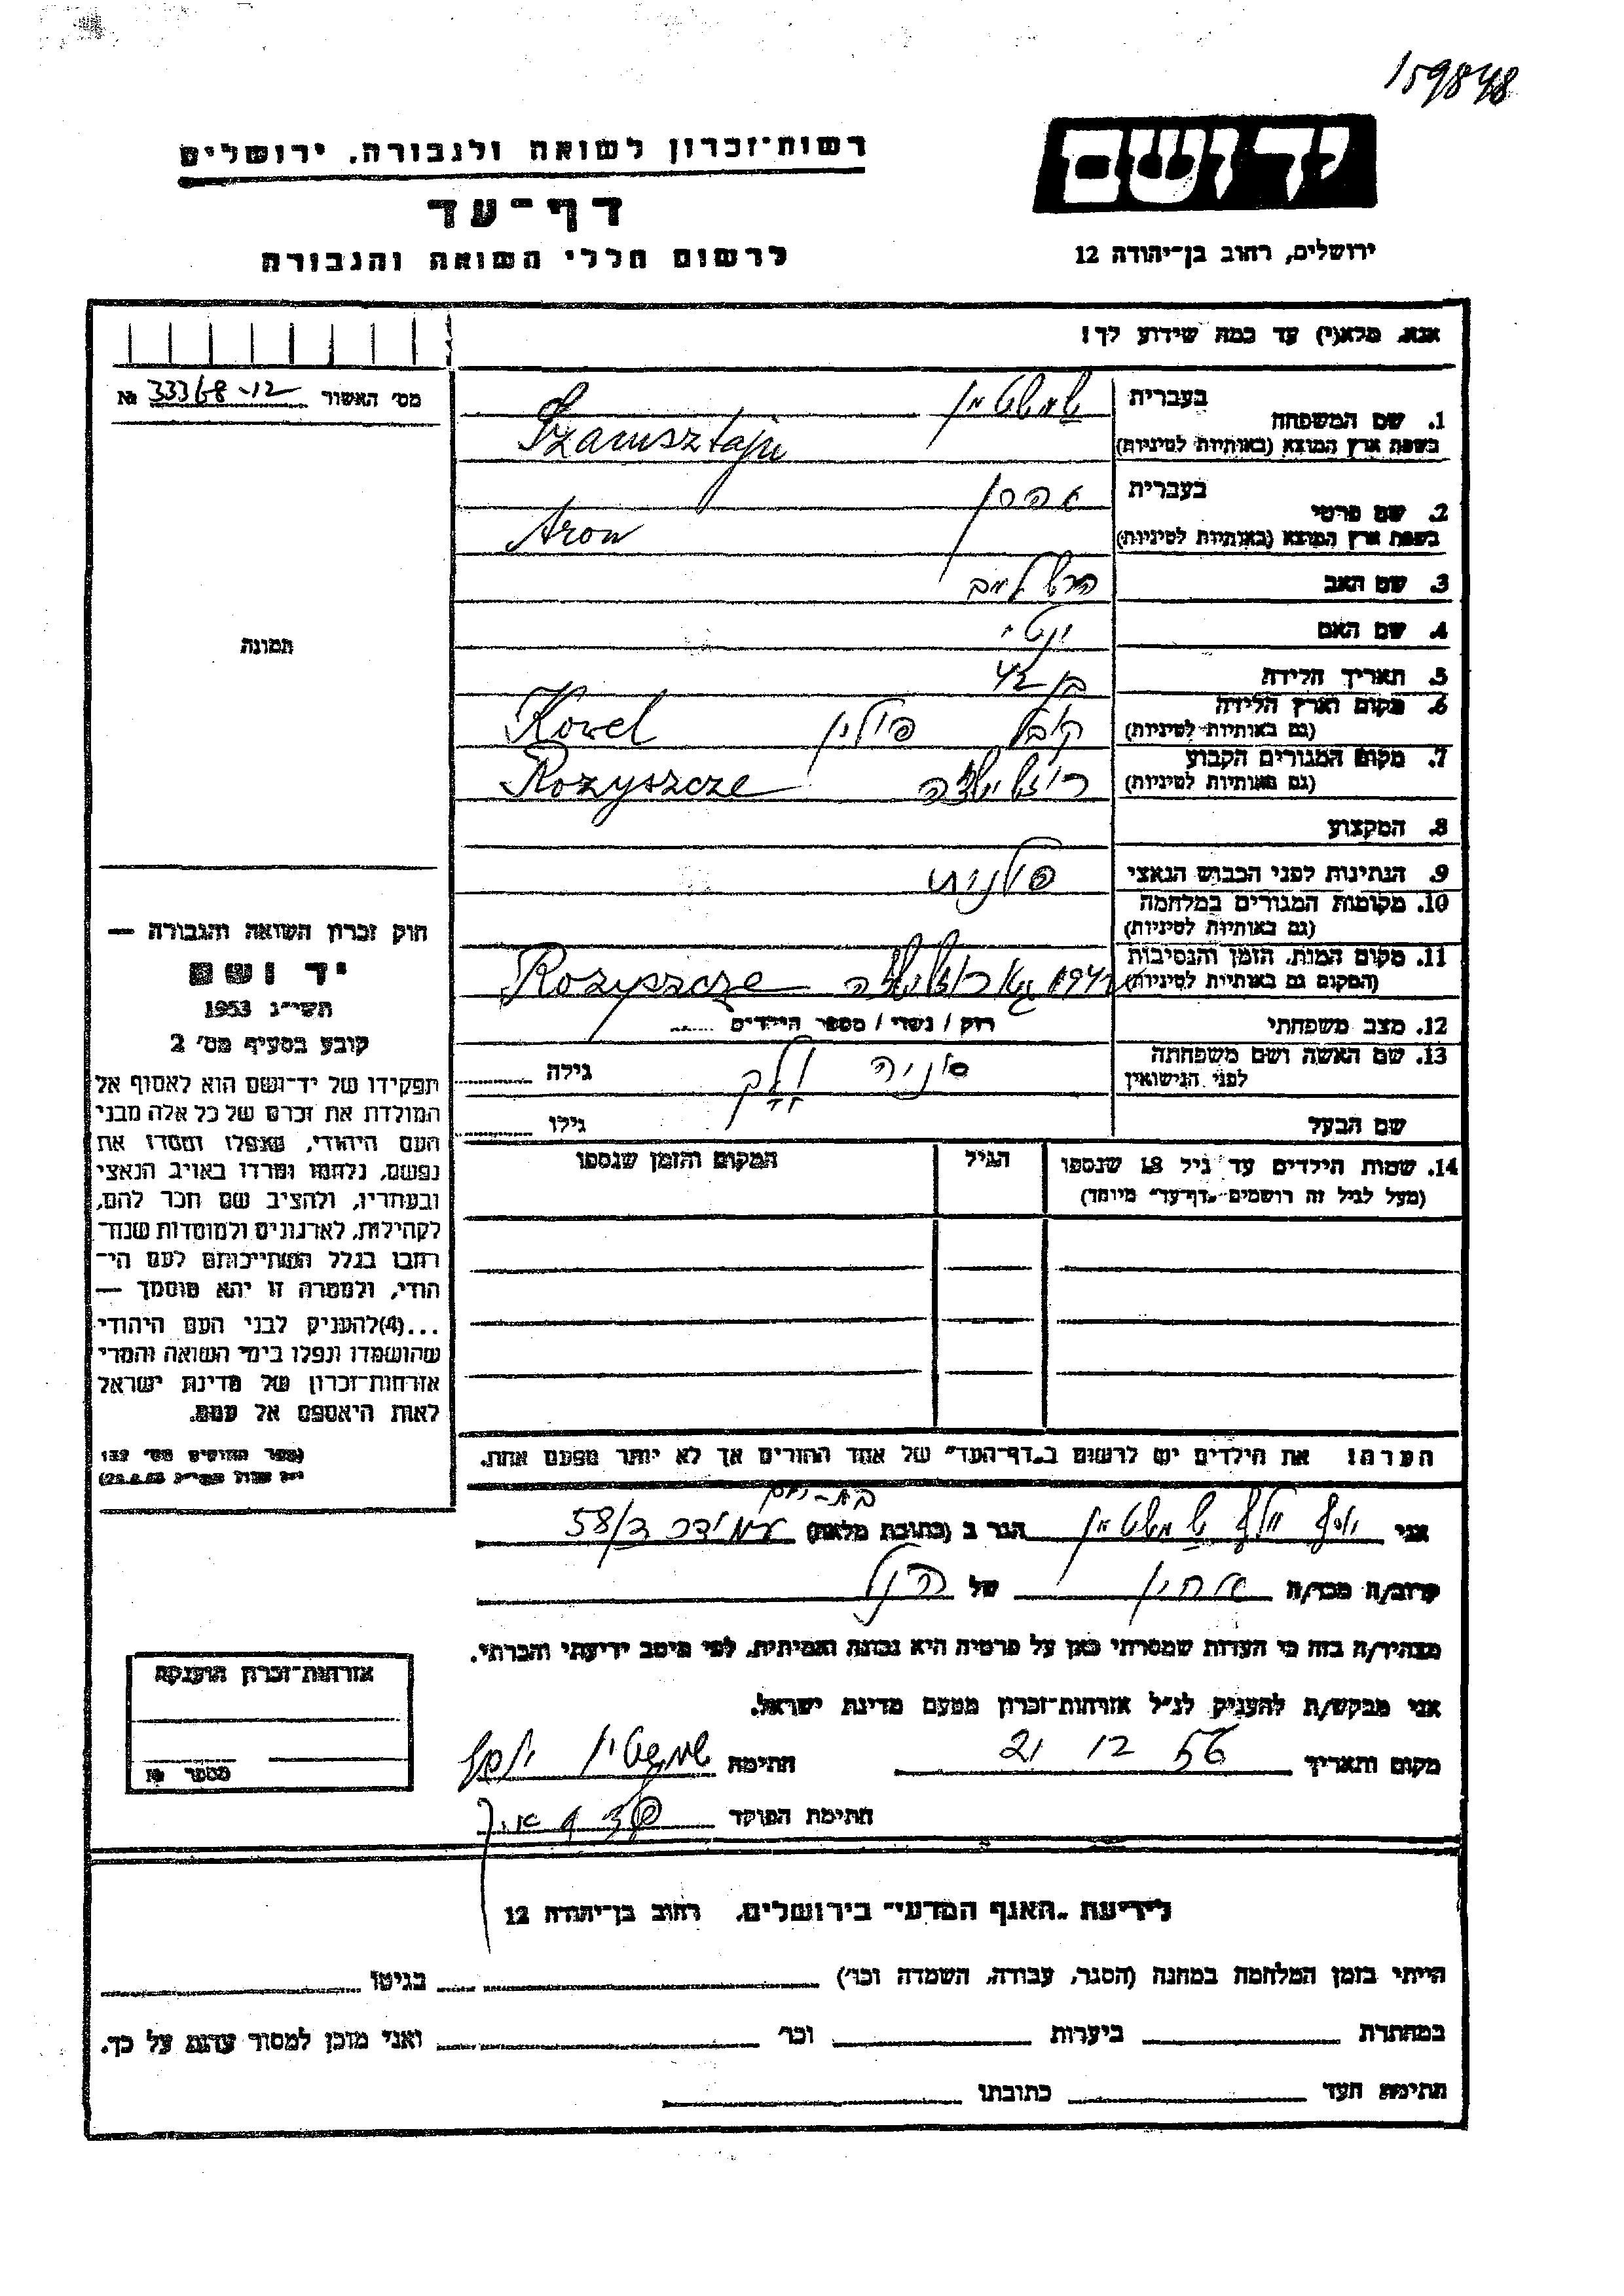 159848
יד ושם
ירושלים, רחוב בן־יהודה 12
רשות־זכרון לשואה ולגבורה. ירושלים
דף־עד
לרשום חללי השואה והגבורה
אנא, מלא(י) עד כמה שידוע לך!
מס׳ האשור 33368-12 №
בעברית
1. שם המשפחה
בשפת ארץ המוצא (באותיות לטיניות) Szamsztajn
בעברית אהרן
2. שם פרטי
בשפת ארץ המוצא (באותיות לטיניות) Aron
3. שם האב הרש לייב
4. שם האם
5. תאריך הלידה בן 42
6. מקום וארץ הלידה קובל פולין Kowel
(גם באותיות לטיניות)
7. מקום המגורים הקבוע רוזשישצה Rozyszcze
(גם באותיות לטיניות)
8. המקצוע
9. הנתינות לפני הכבוש הנאצי פולנית
10. מקומות המגורים במלחמה
(גם באותיות לטיניות)
11. מקום המות, הזמן והנסיבות רוזשישצה Rozyszcze
(המקום גם באותיות לטיניות)
12. מצב משפחתי רוק / נשוי / מספר הילדים
13. שם האשה ושם משפחתה סוניה גילה
לפני הנישואין
שם הבעל גילו
14. שמות הילדים עד גיל 18 שנספו הגיל המקום והזמן שנספו
(מעל לגיל זה רושמים „דף־עד״ מיוחד)
הערה: את הילדים יש לרשום ב„דף־העד״ של אחד ההורים אך לא יותר מפעם אחת.
תמונה
חוק זכרון השואה והגבורה —
יד ושם
תשי״ג 1953
קובע בסעיף מס׳ 2
תפקידו של יד־ושם הוא לאסוף אל
המולדת את זכרם של כל אלה מבני
העם היהודי, שנפלו ומסרו את
נפשם, נלחמו ומרדו באויב הנאצי
ובעוזריו, ולהציב שם וזכר להם,
לקהילות, לארגונים ולמוסדות שנח־
רבו בגלל השתייכותם לעם הי־
הודי, ולמטרה זו יהא מוסמך —
...(4)להעניק לבני העם היהודי
שהושמדו ונפלו בימי השואה והמרי
אזרחות־זכרון של מדינת ישראל
לאות היאספם אל עמם.
(ספר החוקים מס׳ 132
בת-ים
אני הגר ב (כתובת מלאה) עמידר 58/3
קרוב/ה מכר/ה אחיין של הנ״ל
מצהיר/ה בזה כי העדות שמסרתי כאן על פרטיה היא נכונה ואמיתית, לפי מיטב ידיעתי והכרתי.
אני מבקש/ת להעניק לנ״ל אזרחות־זכרון מטעם מדינת ישראל.
מקום ותאריך 21 12 56 חתימה
חתימת הפוקד
אזרחות־זכרון הוענקה
מספר №
לידיעת „האגף המדעי״ בירושלים, רחוב בן־יהודה 12
הייתי בזמן המלחמה במחנה (הסגר, עבודה, השמדה וכו׳) בגיטו
במחתרת ביערות וכו׳ ואני מוכן למסור עדות על כך.
חתימת העד כתובתו